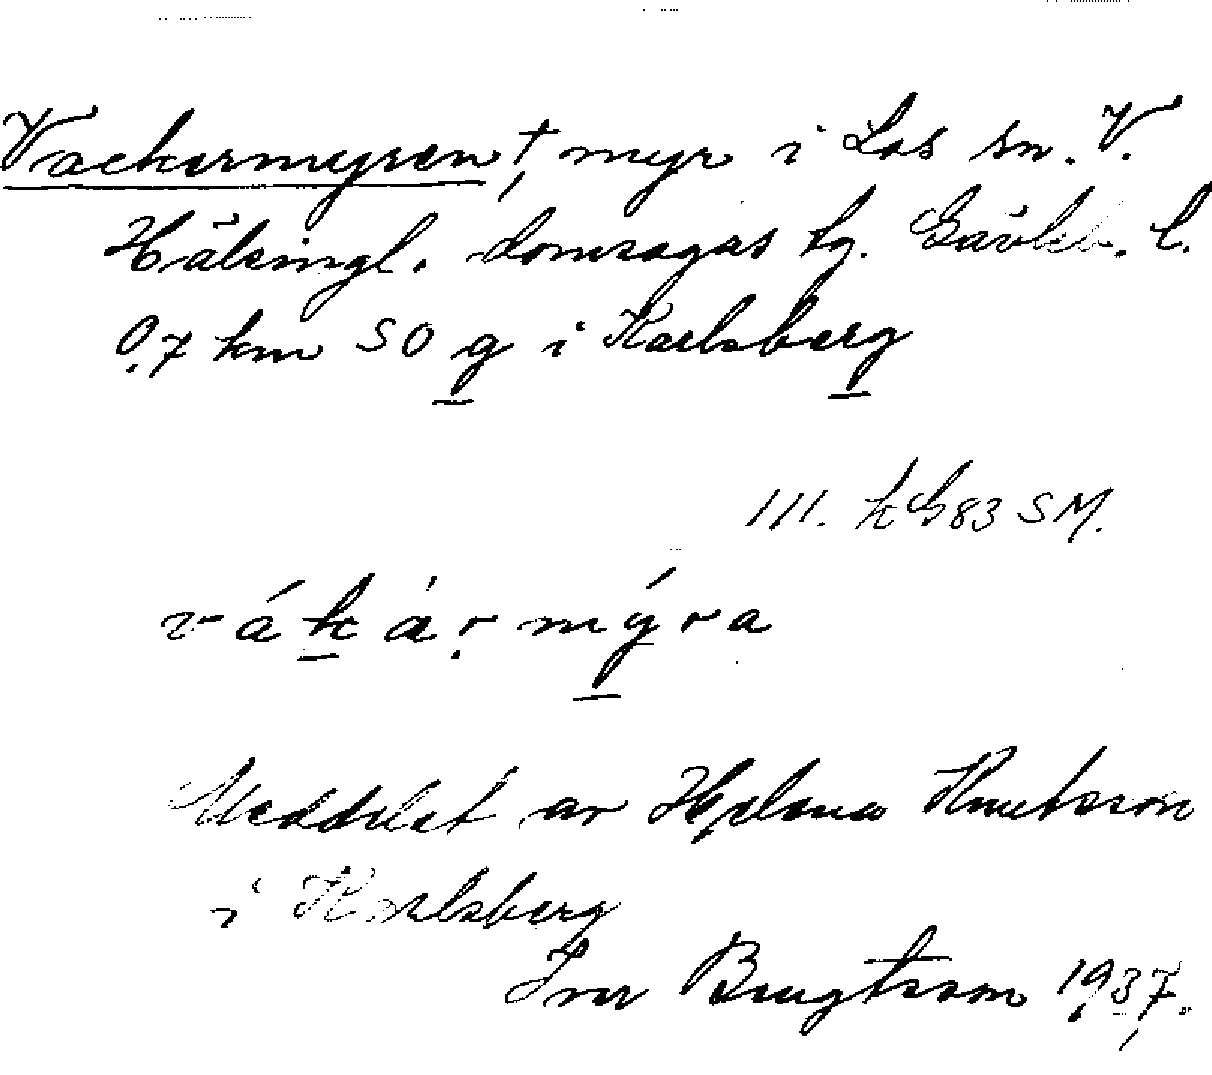 Vackermyren †, myr i Los sn. V.
Hälsingl. domsagas tg. Gävleb. l.
0,7 km SO g i Karlsberg
III. k G83 SM.
v á k á r m ý r a
Meddelat av Helena Knutsson
i Karlsberg
Ivar Bengtsson 1937.